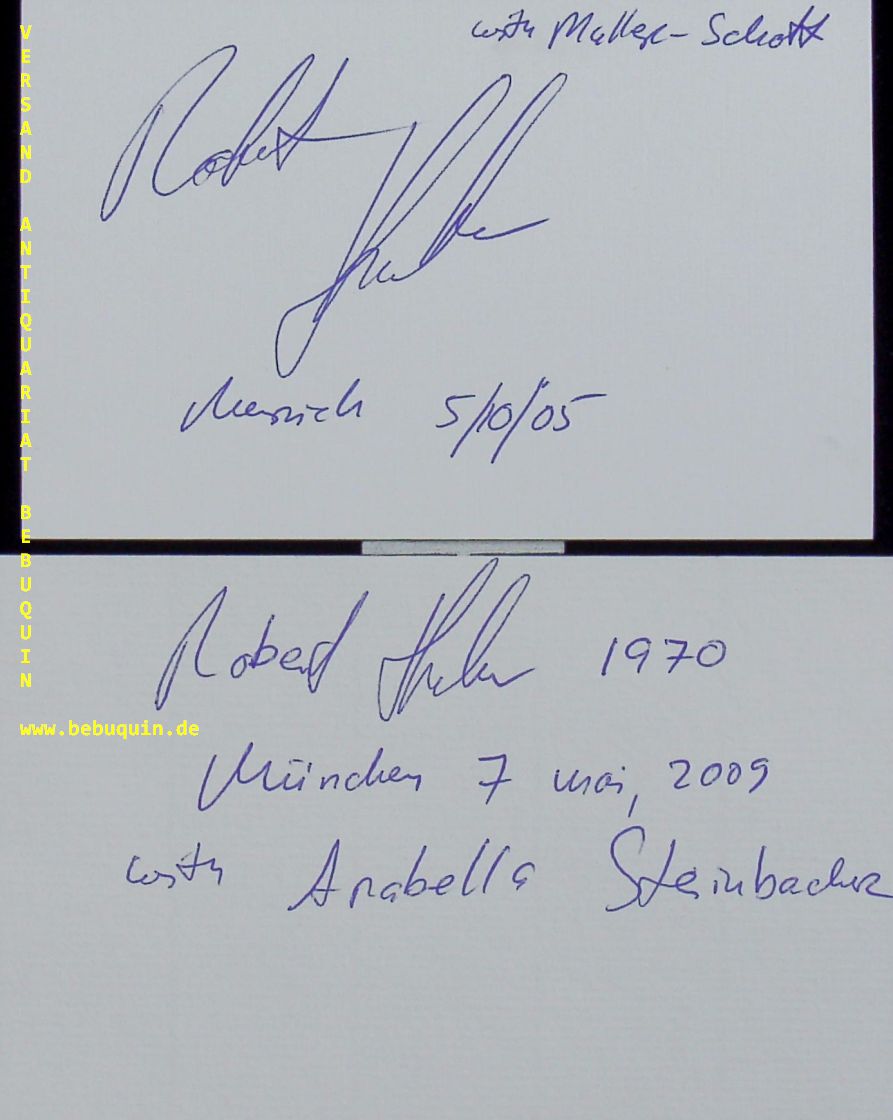 with Muller-Schott
Robert
Munich 5/10/05
Robert 1970
München 7 mai, 2009
with Arabella Steinbacher
VERSAND ANTIQUARIAT BEBUQUIN
www.bebuquin.de